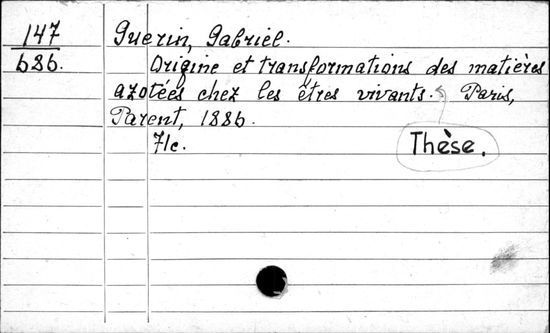 147
686.
Guerin, Gabriel.
Origine et transformations des matières
azotées chez les êtres vivants. Paris,
Parent, 1886.
71c.
Thèse.